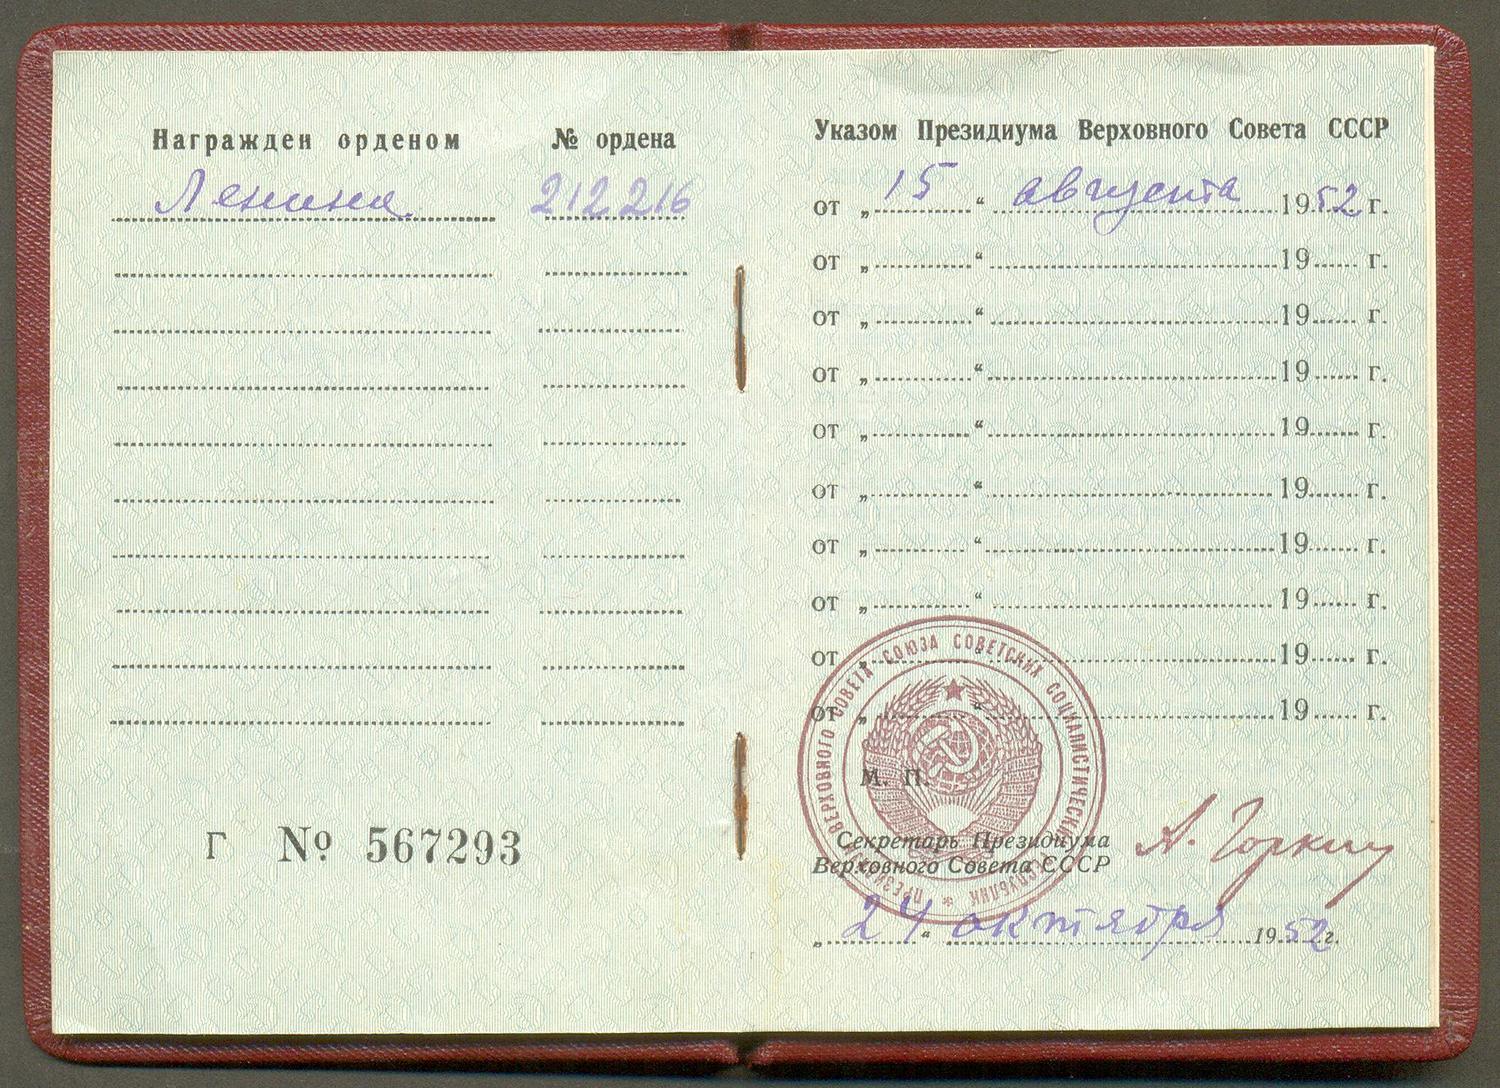 Награжден орденом
№ ордена
Ленина
212216
Г № 567293
Указом Президиума Верховного Совета СССР
от „ 15 “ августа 1952 г.
от „ “ 19 г.
от „ “ 19 г.
от „ “ 19 г.
от „ “ 19 г.
от „ “ 19 г.
от „ “ 19 г.
от „ “ 19 г.
от „ “ 19 г.
от „ “ 19 г.
ПРЕЗИДИУМ ВЕРХОВНОГО СОВЕТА СОЮЗА СОВЕТСКИХ СОЦИАЛИСТИЧЕСКИХ РЕСПУБЛИК *
М. П.
Секретарь Президиума
Верховного Совета СССР
А. Горкин
„ 24 “ октября 1952 г.